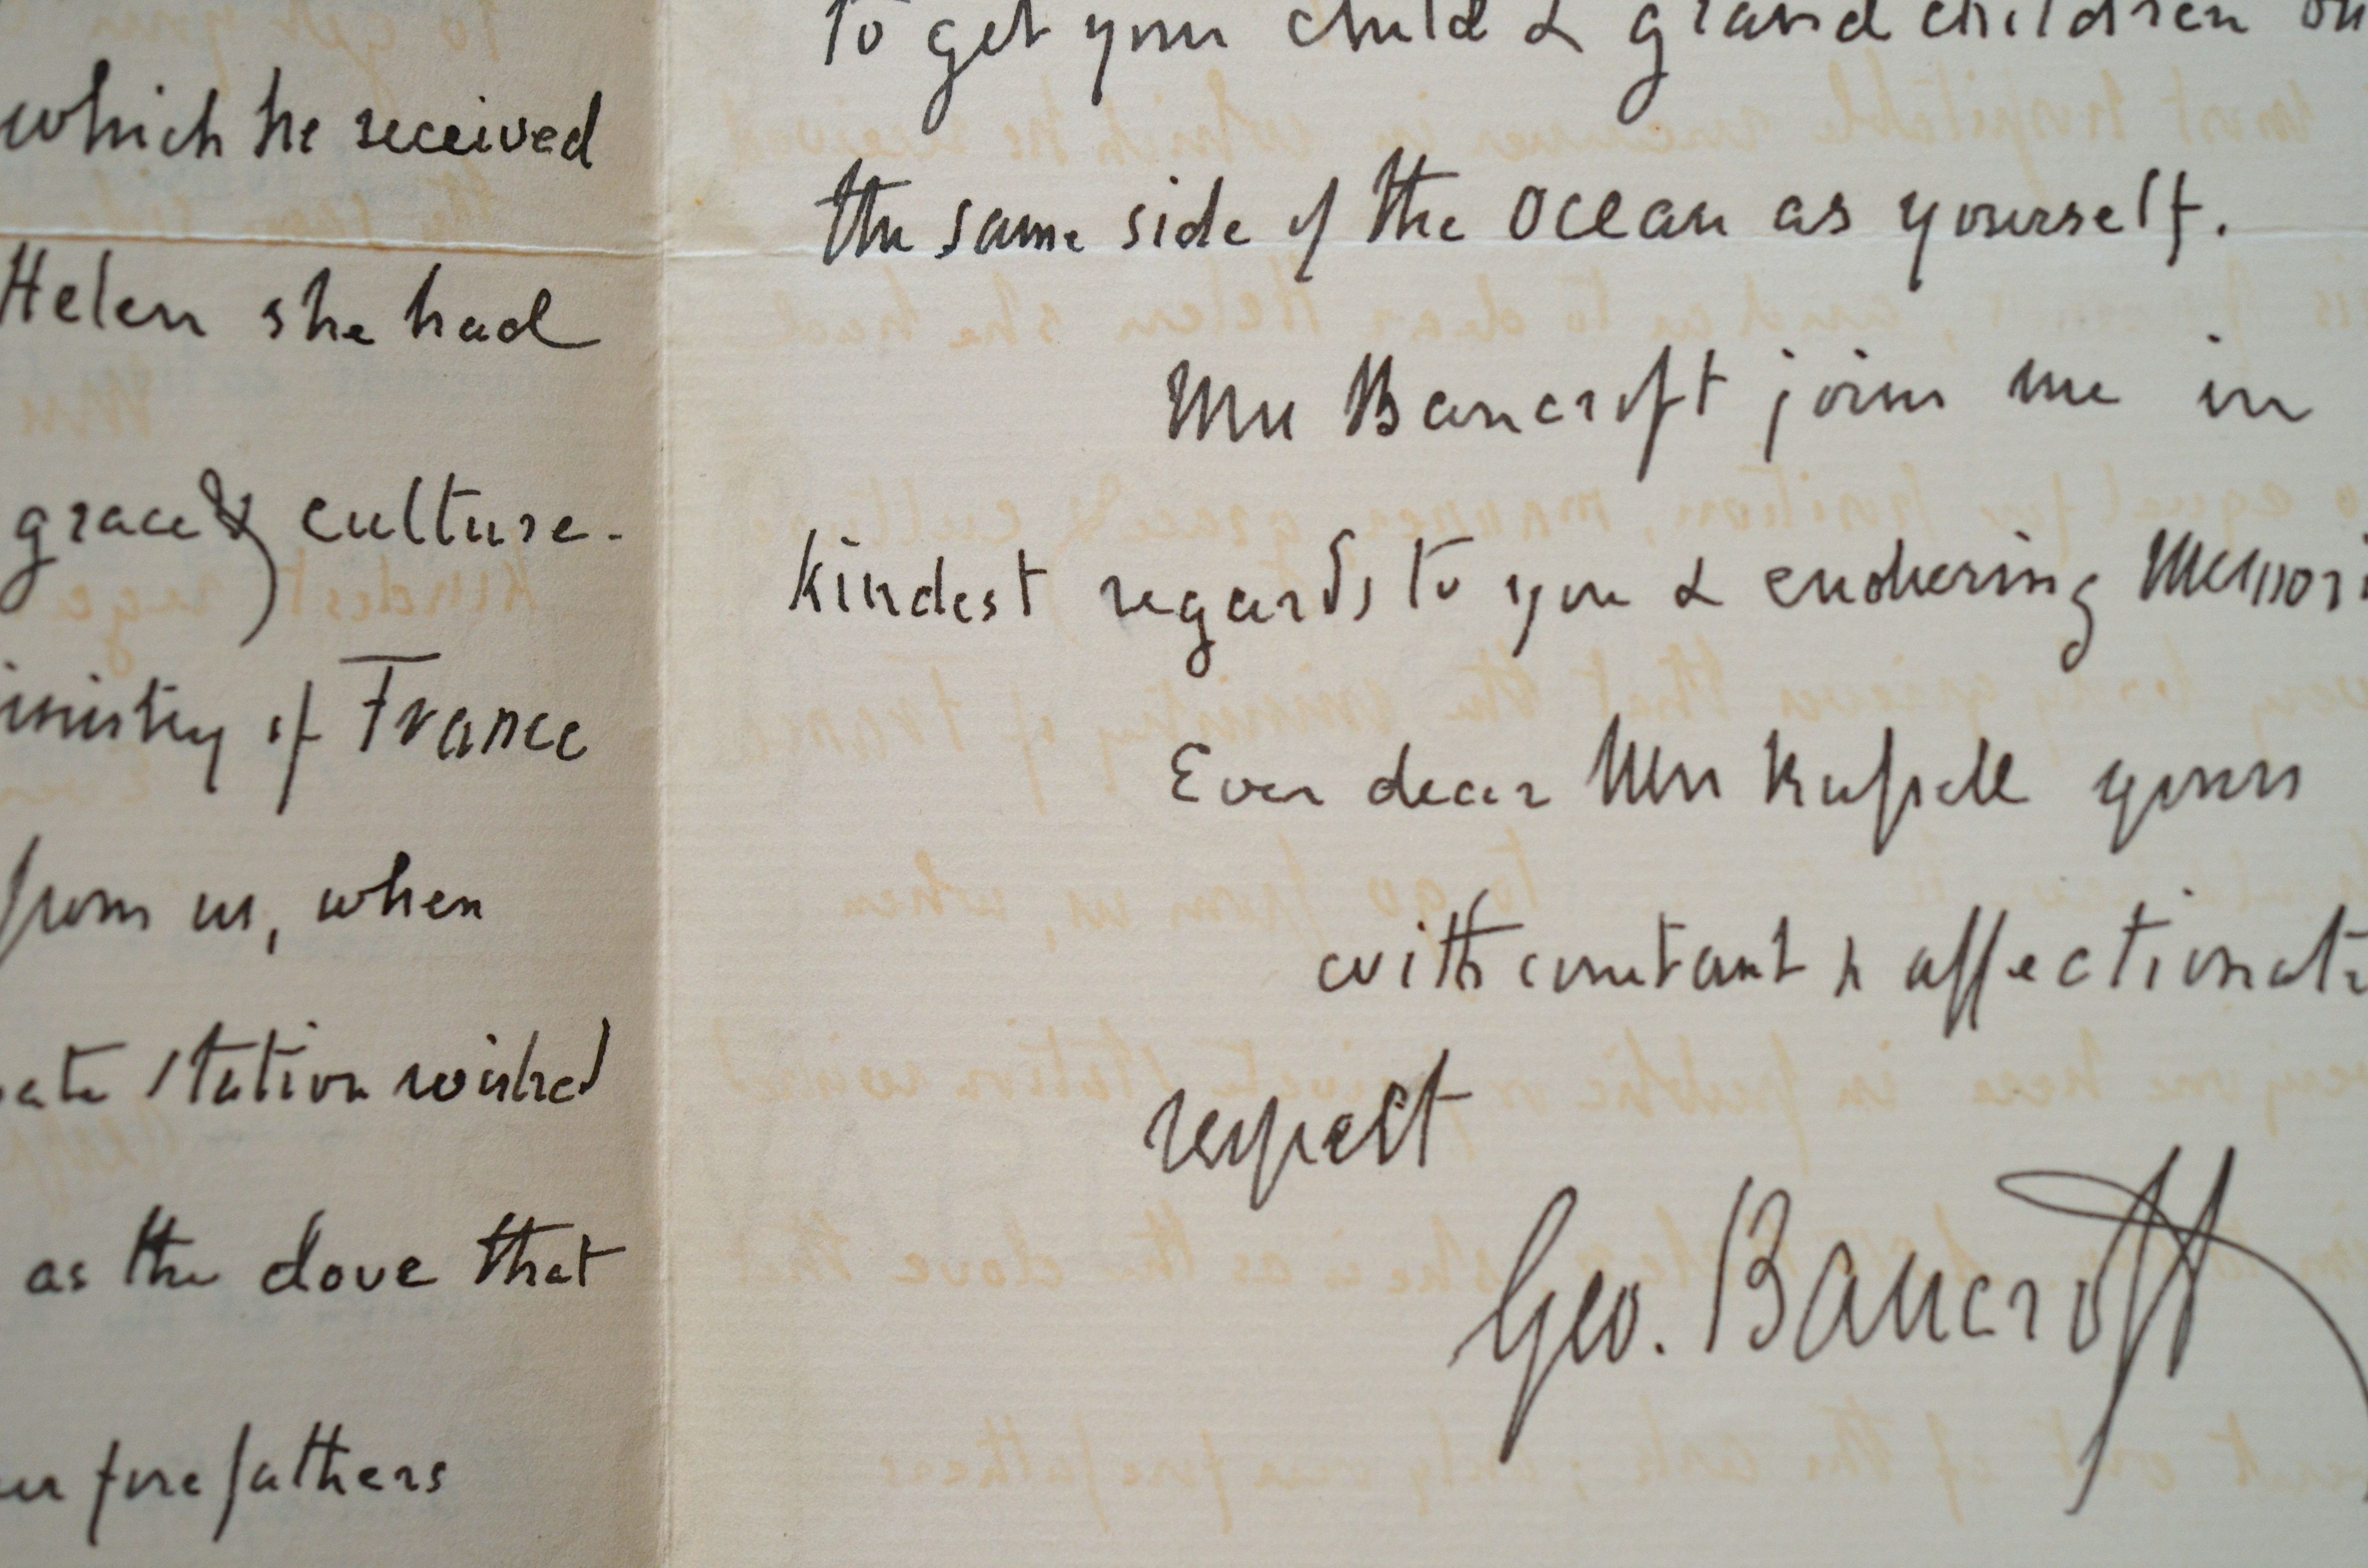 which he received
Helen she had
grace & culture.
of France
from us, when
station wished
as the dove that
forefathers
to get your child & grand children
the same side of the ocean as yourself.
Mrs Bancroft joins me in
kindest regards to you & endearing
Ever dear Mrs Russell yours
with constant & affectionate
respect
Geo. Bancroft